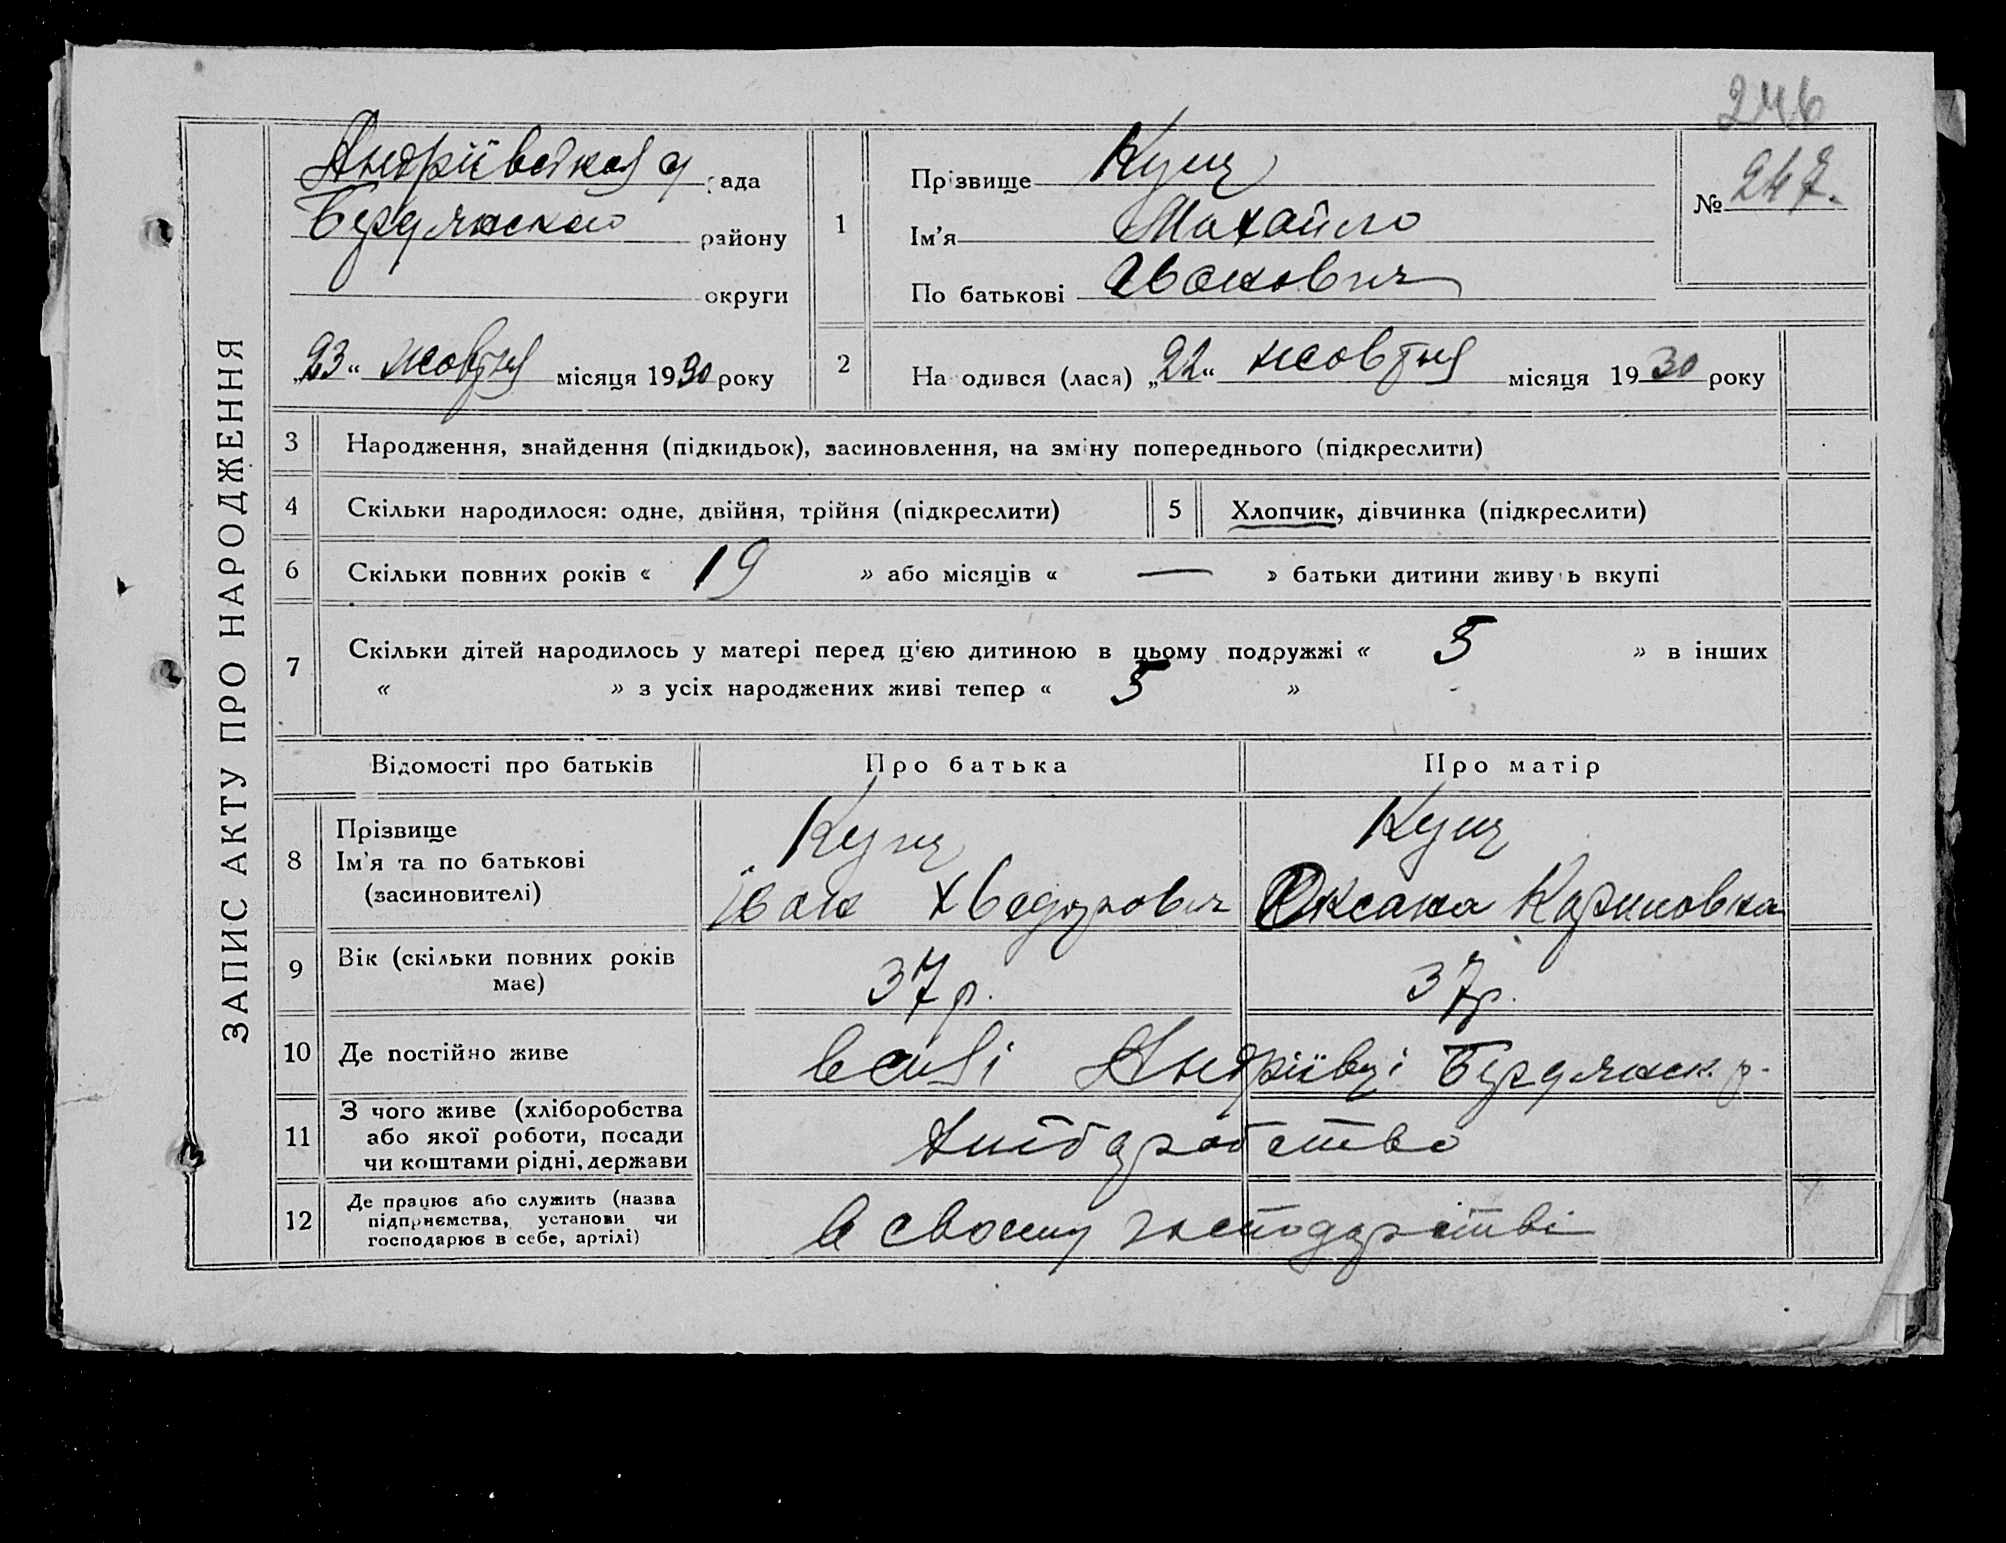 246
ЗАПИС АКТУ ПРО НАРОДЖЕННЯ
Андріївська с рада
Бердянсько району
округи
„23“ жовтня місяця 1930 року
1
Прізвище Кущ
Ім’я Михайло
По батькові Іванович
№ 247.
2 Народився (лася) „22“ жовтня місяця 1930 року
3 Народження, знайдення (підкидьок), засиновлення, на зміну попереднього (підкреслити)
4 Скільки народилося: одне, двійня, трійня (підкреслити) 5 Хлопчик, дівчинка (підкреслити)
6 Скільки повних років « 19 » або місяців « — » батьки дитини живуть вкупі
7 Скільки дітей народилось у матері перед цією дитиною в цьому подружжі « 5 » в інших
« » з усіх народжених живі тепер « 5 »
Відомості про батьків Про батька Про матір
8 Прізвище
Ім’я та по батькові
(засиновителі)
Кущ
Іван Хведорович
Кущ
Оксана Карповна
9 Вік (скільки повних років
має)
37 р. 37 р.
10 Де постійно живе в селі Андріївці Бердянськ. р.
11 З чого живе (хліборобства
або якої роботи, посади
чи коштами рідні, держави
хліборобство
12 Де працює або служить (назва
підприємства, установи чи
господарює в себе, артілі)
в своему господарстві